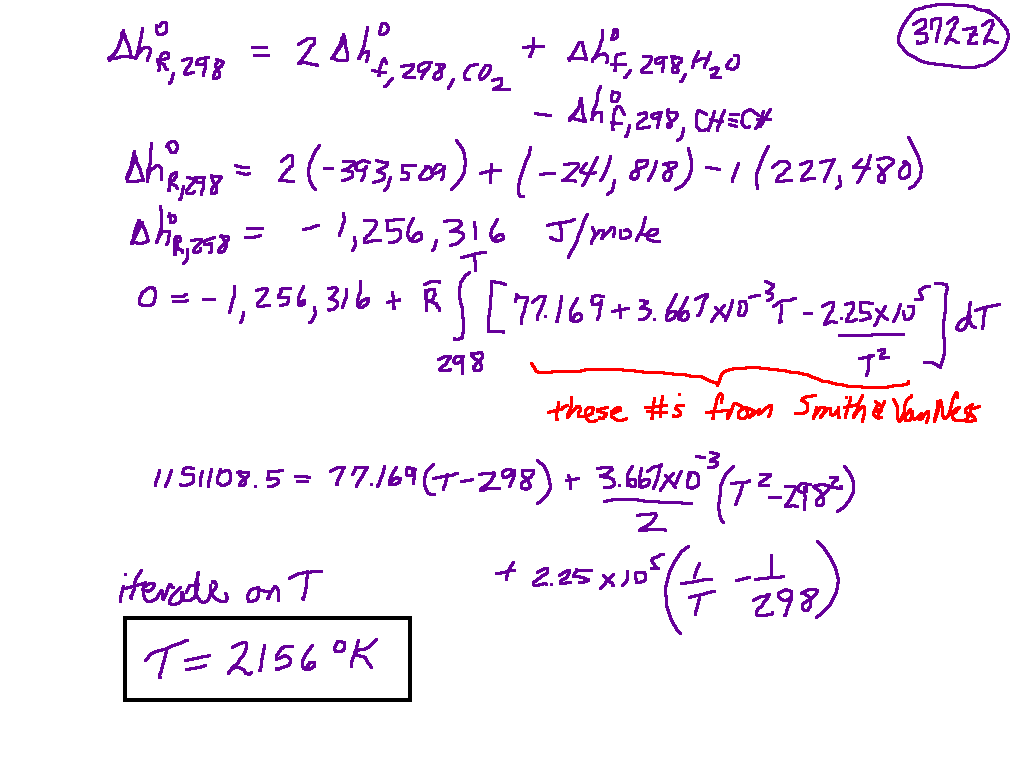 372z2
Δh°R,298 = 2 Δh°f,298,CO2 + Δh°f,298,H2O
- Δh°f,298,CH≡CH
Δh°R,298 = 2(-393,509) + (-241,818) - 1(227,480)
Δh°R,298 = -1,256,316 J/mole
0 = -1,256,316 + R̄ ∫298^T [77.169 + 3.667x10^-3 T - 2.25x10^5/T^2] dT
these #s from Smith & Van Ness
1151108.5 = 77.169(T-298) + 3.667x10^-3/2 (T^2-298^2)
+ 2.25x10^5 (1/T - 1/298)
iterade on T
T = 2156 °K